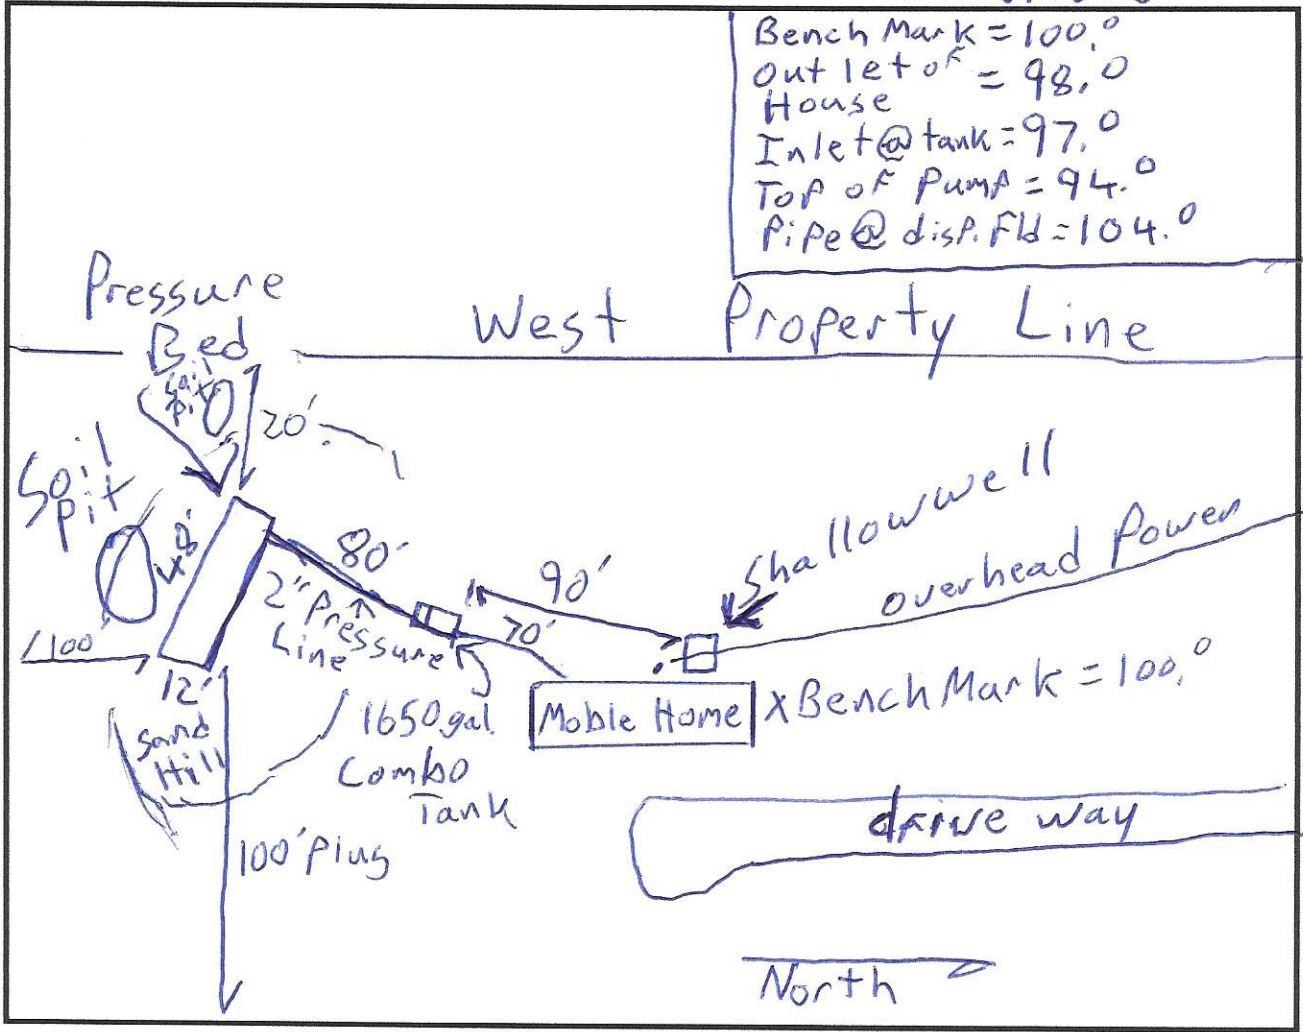 Bench Mark = 100.0
Outlet of = 98.0
House
Inlet @ tank = 97.0
Top of Pump = 94.0
Pipe @ disp. Fld = 104.0
Pressure
Bed
West Property Line
Soil
pit
20'
Soil
pit
48'
80'
2" Pressure
Line
90'
70'
Shallow well
overhead Power
100'
12'
Sand
Hill
1650 gal
Combo
Tank
Moble Home
x Bench Mark = 100.0
drive way
100' Plus
North